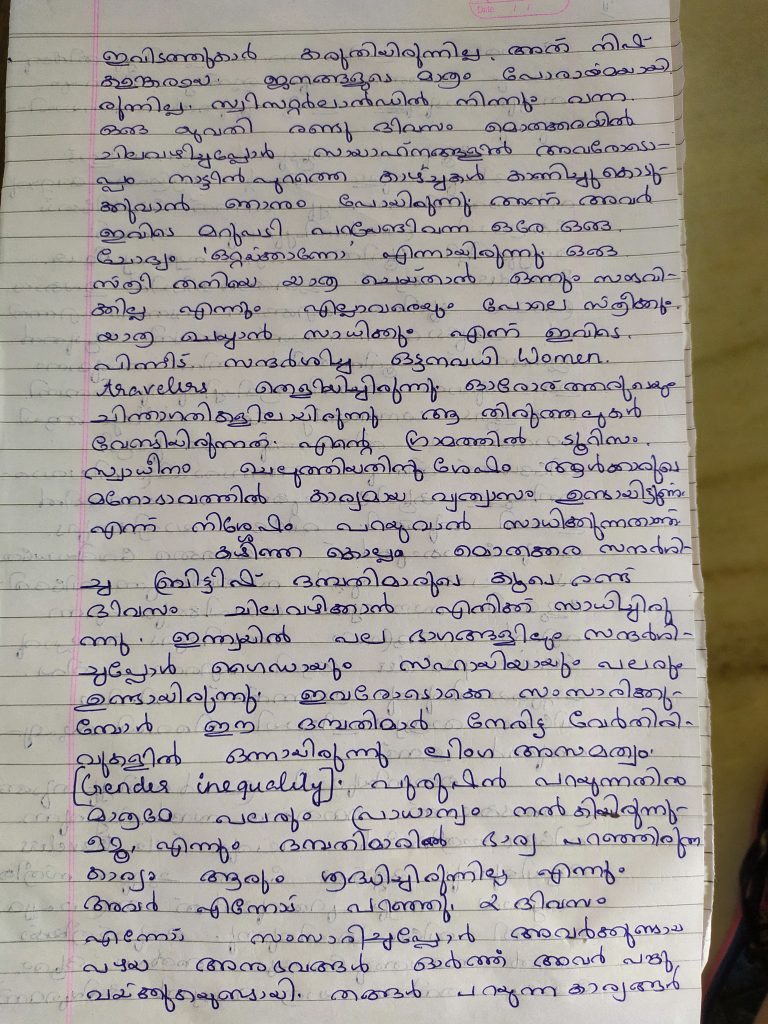 ഇവിടത്തുകാർ കരുതിയിരുന്നില്ല. അത് നിഷ്
കളങ്കരായ ജനങ്ങളുടെ മാത്രം പോരായ്മയായി
രുന്നില്ല. സ്വിസറ്റർലാൻഡിൽ നിന്നും വന്ന
ഒരു യുവതി രണ്ടു ദിവസം മൊതക്കരയിൽ
ചിലവഴിച്ചപ്പോൾ സായാഹ്നങ്ങളിൽ അവരോടൊ-
പ്പം നാട്ടിൻപുറത്തെ കാഴ്ച്ചകൾ കാണിച്ചുകൊടു-
ക്കുവാൻ ഞാനും പോയിരുന്നു. അന്ന് അവർ
ഇവിടെ മറുപടി പറയേണ്ടിവന്ന ഒരേ ഒരു
ചോദ്യം 'ഒറ്റയ്ക്കാണോ' എന്നായിരുന്നു. ഒരു
സ്ത്രീ തനിയെ യാത്ര ചെയ്താൽ ഒന്നും സംഭവി-
ക്കില്ല എന്നും എല്ലാവരെയും പോലെ സ്ത്രീക്കും
യാത്ര ചെയ്യാൻ സാധിക്കും എന്ന് ഇവിടെ
പിന്നീട് സന്ദർശിച്ച ഒട്ടനവധി Women
travelers തെളിയിച്ചിരുന്നു. ഓരോരുത്തരുടെയും
ചിന്താഗതികളിലായിരുന്നു ആ തിരുത്തലുകൾ
വേണ്ടിയിരുന്നത്. എന്റെ ഗ്രാമത്തിൽ ടൂറിസം
സ്വാധീനം ചെലുത്തിയതിനു ശേഷം ആൾക്കാരുടെ
മനോഭാവത്തിൽ കാര്യമായ വ്യത്യാസം ഉണ്ടായിട്ടുണ്ട്
എന്ന് നിശ്ശേഷം പറയുവാൻ സാധിക്കുന്നതാണ്.
കഴിഞ്ഞ കൊല്ലം മൊതക്കര സന്ദർശി-
ച്ച ബ്രിട്ടീഷ് ദമ്പതിമാരുടെ കൂടെ രണ്ട്
ദിവസം ചിലവഴിക്കാൻ എനിക്ക് സാധിച്ചിരു
ന്നു. ഇന്ത്യയിൽ പല ഭാഗങ്ങളിലും സന്ദർശി-
ച്ചപ്പോൾ ഗൈഡായും സഹായിയായും പലരും
ഉണ്ടായിരുന്നു. ഇവരോടൊക്കെ സംസാരിക്കു-
മ്പോൾ ഈ ദമ്പതിമാർ നേരിട്ട വേർതിരി-
വുകളിൽ ഒന്നായിരുന്നു ലിംഗ അസമത്വം.
[Gender inequality]. പുരുഷൻ പറയുന്നതിൽ
മാത്രമേ പലരും പ്രാധാന്യം നൽകിയിരുന്നു-
ള്ളൂ, എന്നും ദമ്പതിമാരിൽ ഭാര്യ പറഞ്ഞിരുന്ന
കാര്യം ആരും ശ്രദ്ധിച്ചിരുന്നില്ല എന്നും
അവർ എന്നോട് പറഞ്ഞു. 2 ദിവസം
എന്നോട് സംസാരിച്ചപ്പോൾ അവർക്കുണ്ടായ
പഴയ അനുഭവങ്ങൾ ഓർത്ത് അവർ പങ്കു
വയ്ക്കുകയുണ്ടായി. തങ്ങൾ പറയുന്ന കാര്യങ്ങൾ